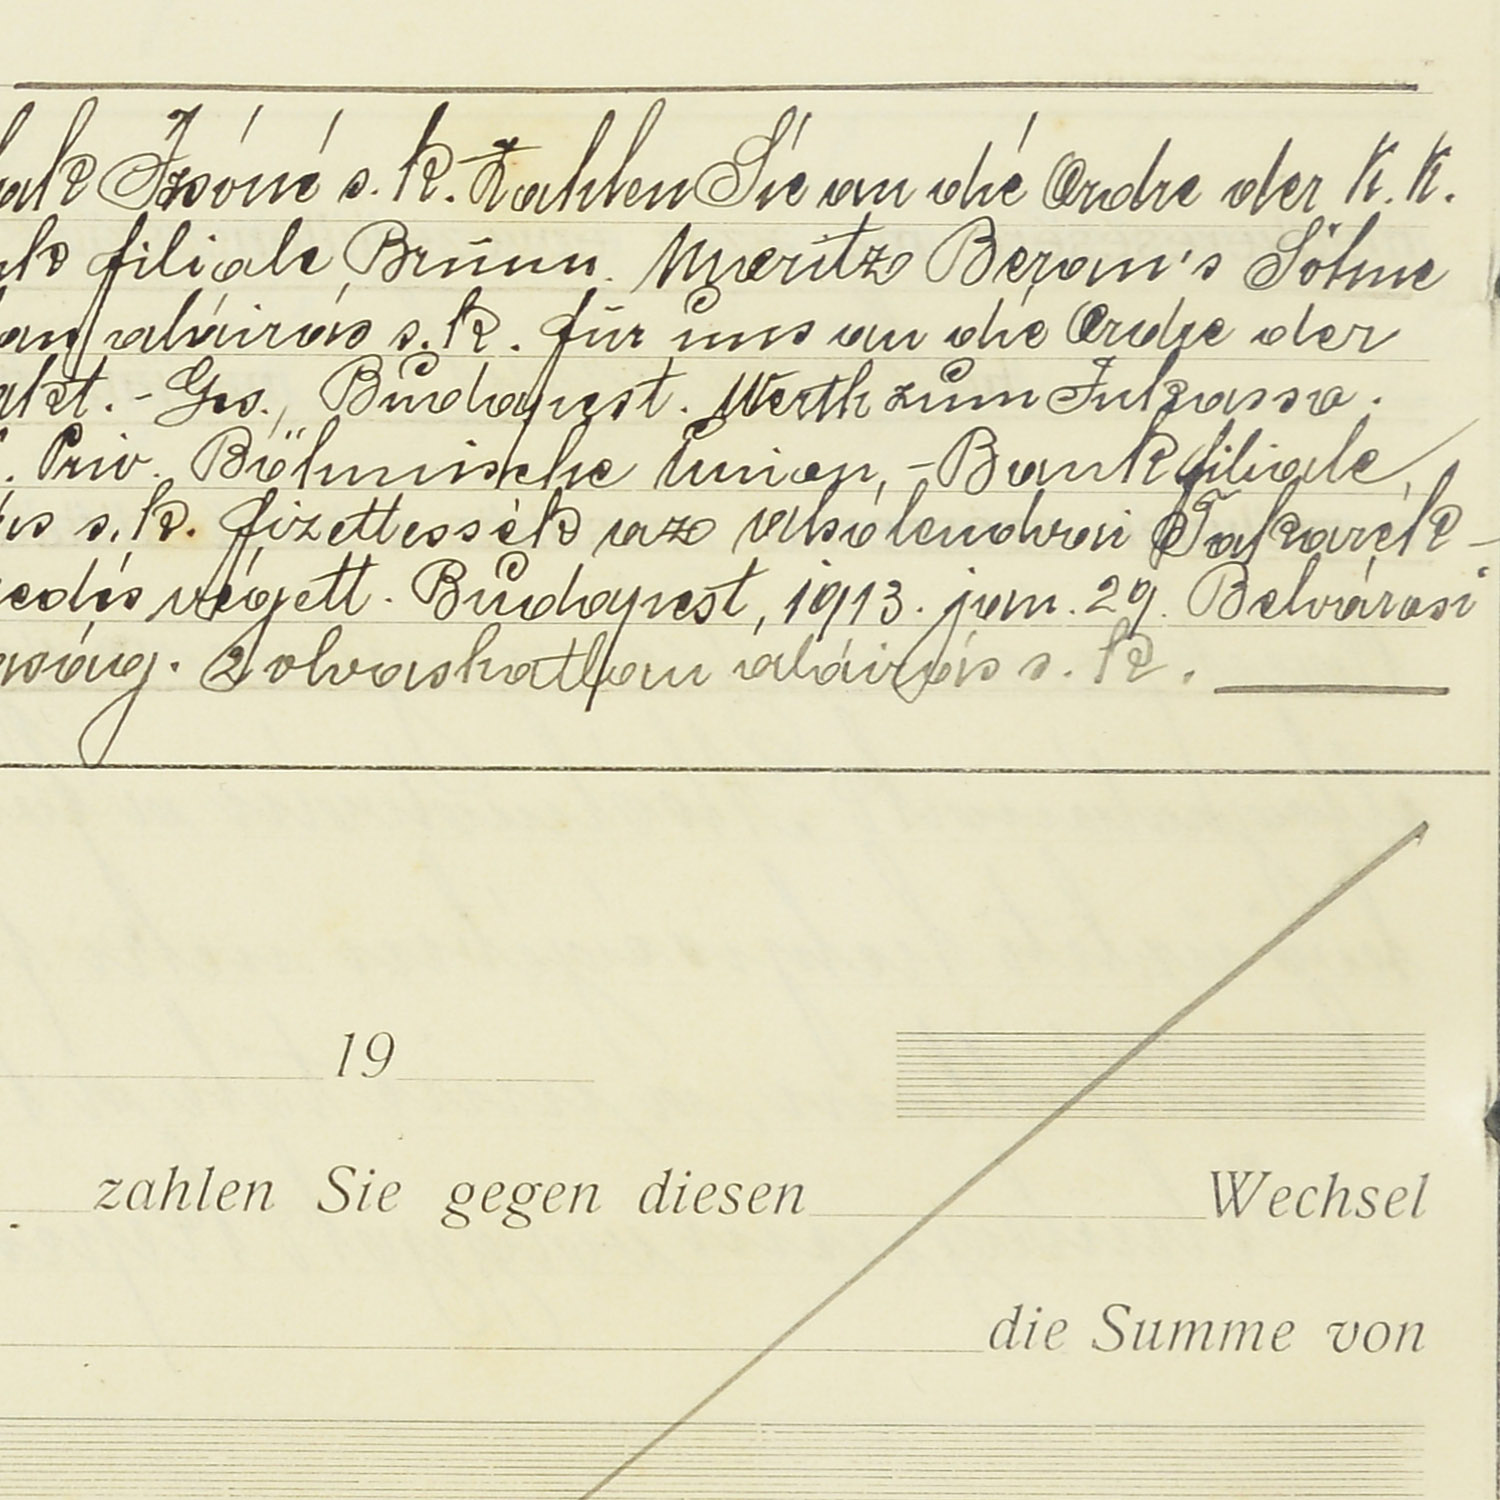 Izsóné s. k. Zahlen Sie an die Ordre der K. K.
filiale Brünn. Moritz Beran's Söhne
aláirás s. k. für uns an die Ordre der
Akt. - Ges., Budapest. Werth zum Inkasso.
. Priv. Böhmische Union, - Bank filiale,
s. k. fizettessék az alsólendvai Takarék -
végett. Budapest, 1913. jan. 29. Belvárosi
2 olvashatlan aláirás s. k.
19
zahlen Sie gegen diesen Wechsel
die Summe von